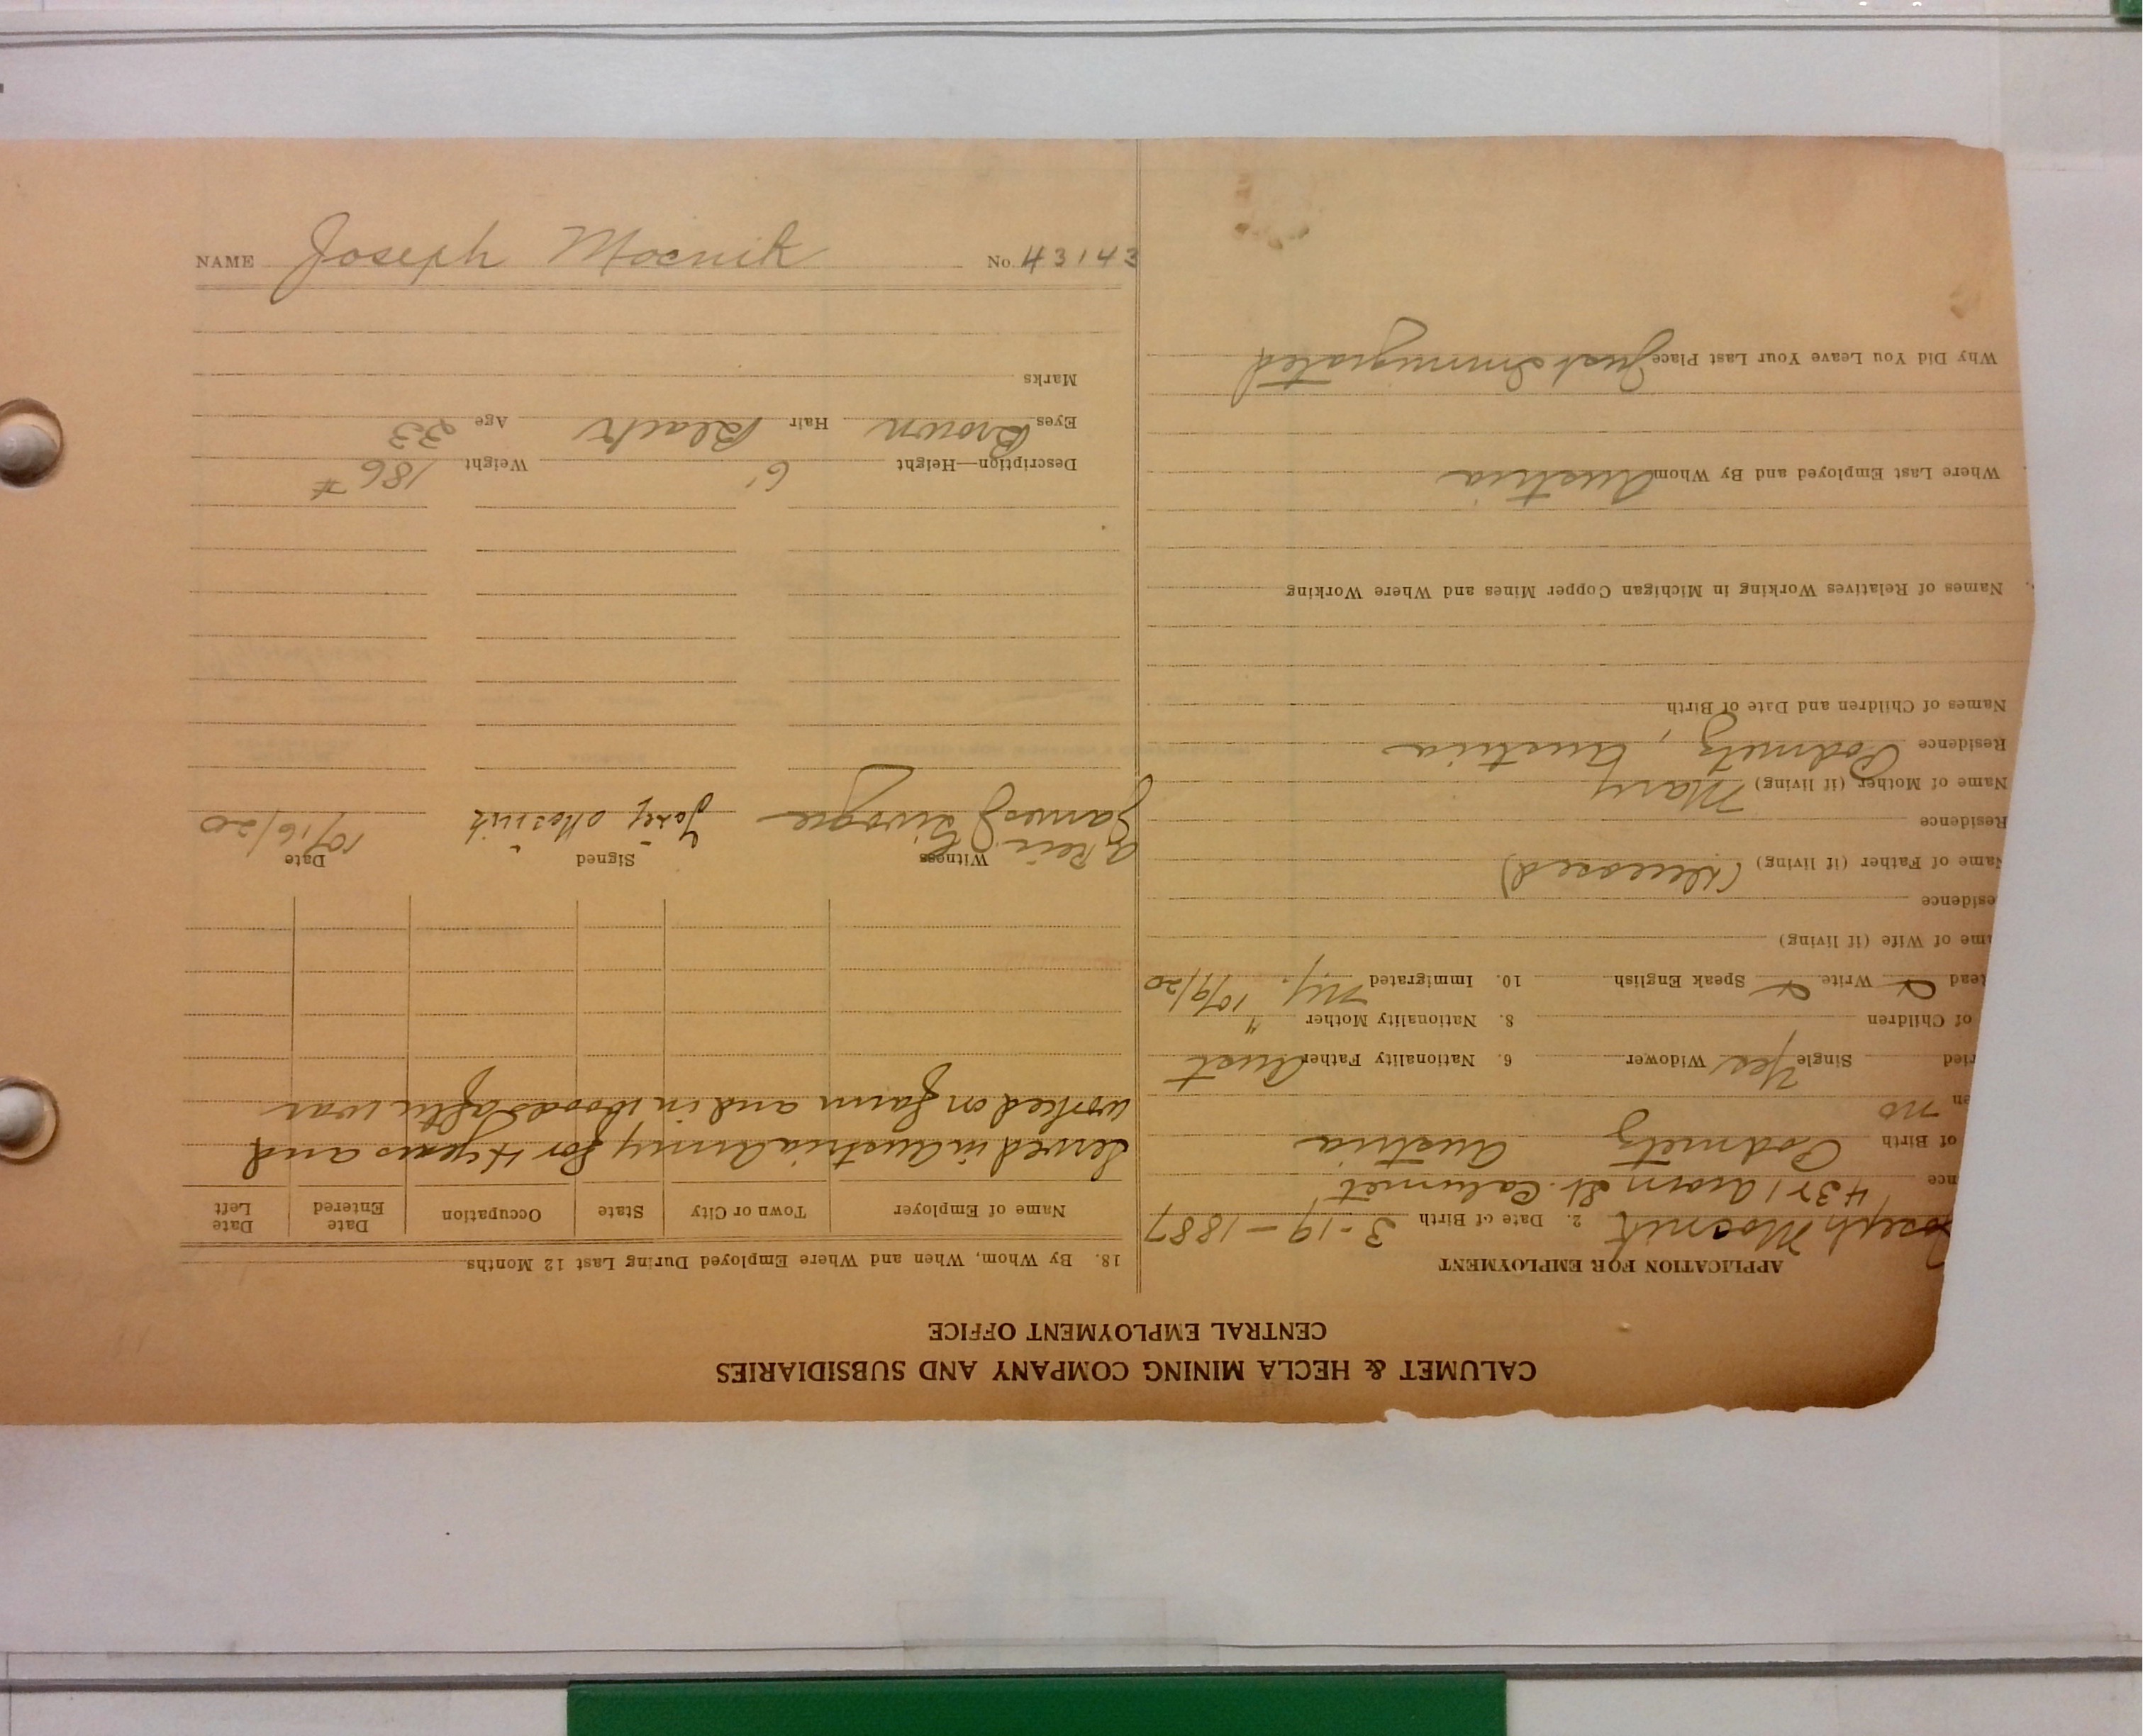 NAME Joseph Mocnik No. 43143
CALUMET & HECLA MINING COMPANY AND SUBSIDIARIES
CENTRAL EMPLOYMENT OFFICE
APPLICATION FOR EMPLOYMENT
Joseph Mocnik 2. Date of Birth 3-19-1887
nce 4371 Acorn St. Calumet
of Birth Podmelz Austria
en no
ried Single Yes Widower 6. Nationality Father Aust
of Children 8. Nationality Mother "
ead Write Speak English 10. Immigrated N.Y. 10/9/20
me of Wife (if living)
esidence
Name of Father (if living) (Deceased)
Residence
Name of Mother (if living) Mary
Residence Podmelz, Austria
Names of Children and Date of Birth
Names of Relatives Working in Michigan Copper Mines and Where Working
Where Last Employed and By Whom Austria
Why Did You Leave Your Last Place Just Immigrated
18. By Whom, When and Where Employed During Last 12 Months
Name of Employer Town or City State Occupation Date Entered Date Left
Served in Austria Army for 4 years and
worked on farm and in woods after war
Witness Signed Date
James Josef Mocnik 10/16/20
Description—Height 6' Weight 186 #
Eyes Brown Hair Black Age 33
Marks